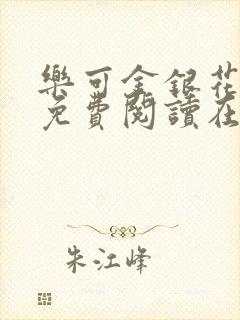 樂可金銀花
免費閱讀在
朱江峰